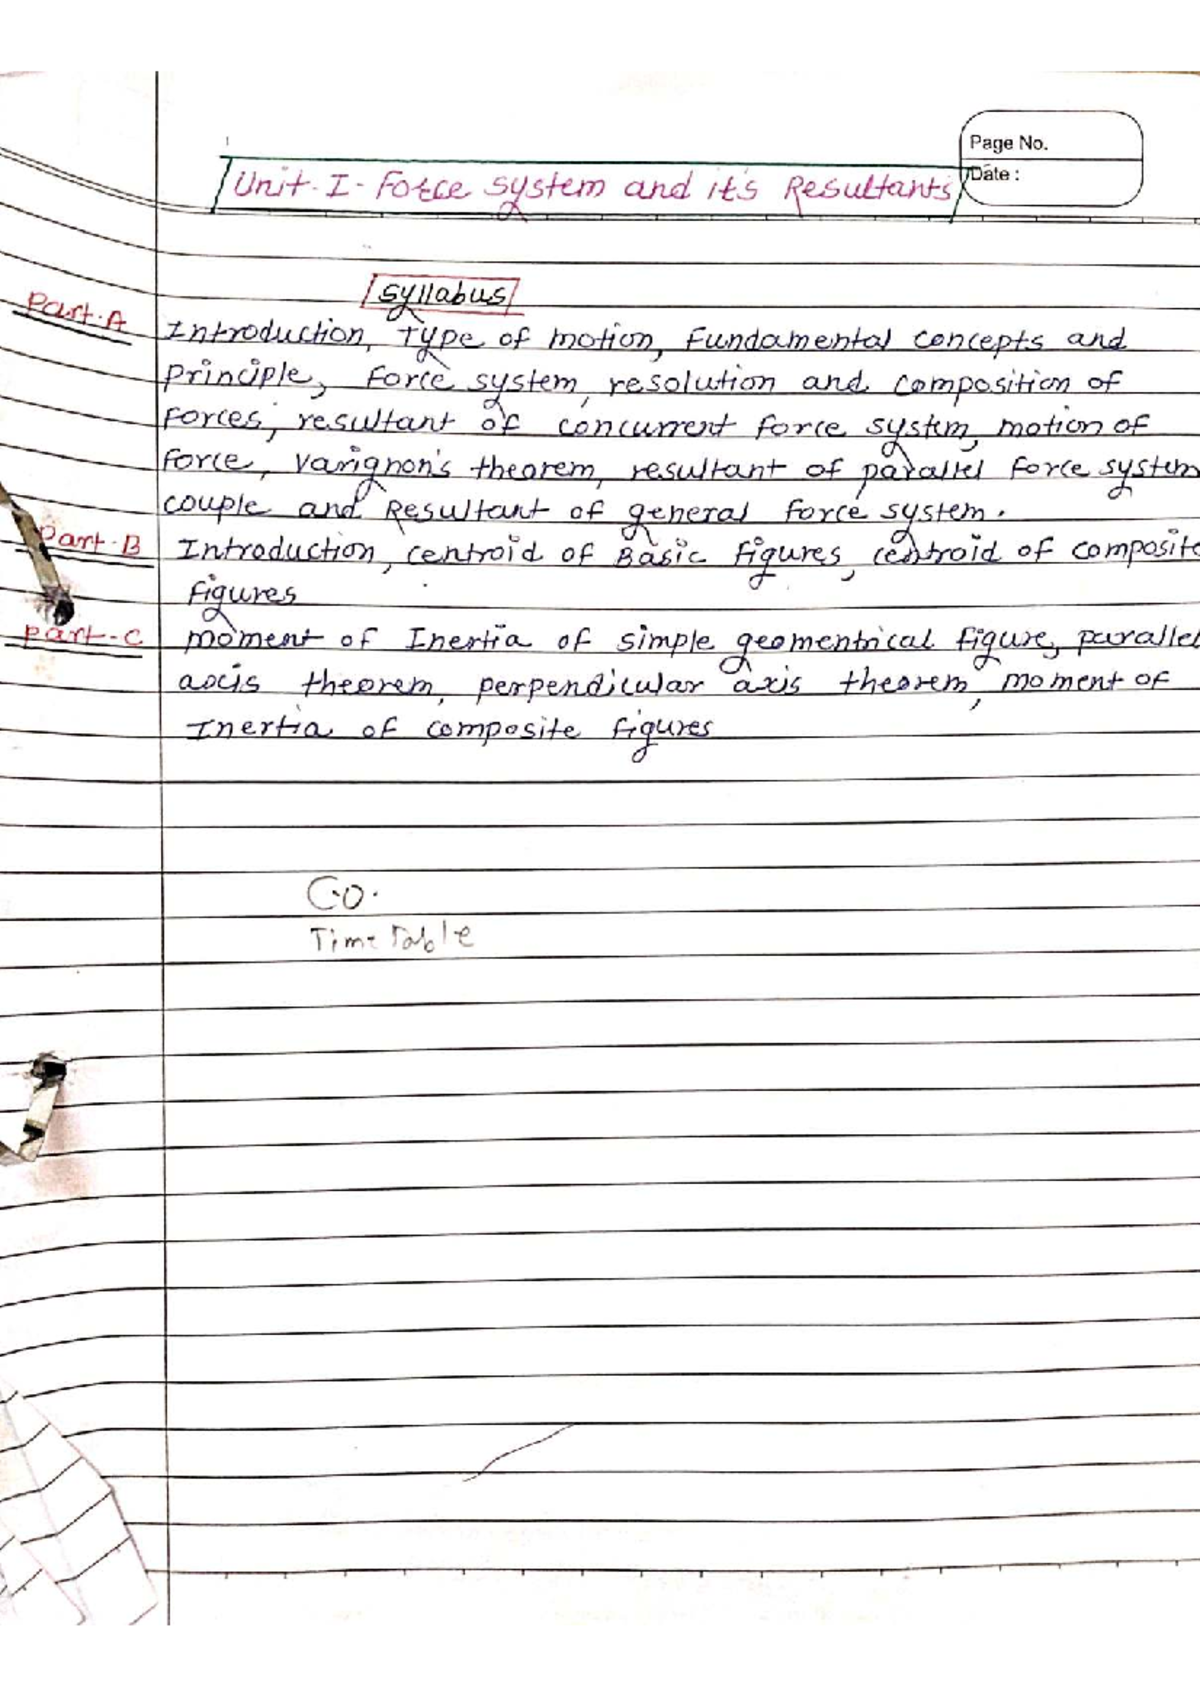 Page No.
Date :
Unit-I- Force System and it's Resultants
Syllabus
Part-A
Introduction, Type of motion, Fundamental concepts and
principle, Force system, resolution and composition of
Forces, resultant of concurrent force system, motion of
force, Varignon's theorem, resultant of parallel force system
couple and Resultant of general force system.
Part-B
Introduction, centroid of Basic figures, centroid of composite
figures
Part-C
moment of Inertia of simple geomentrical figure, parallel
axis theorem, perpendicular axis theorem, moment of
Inertia of composite figures
Time Table